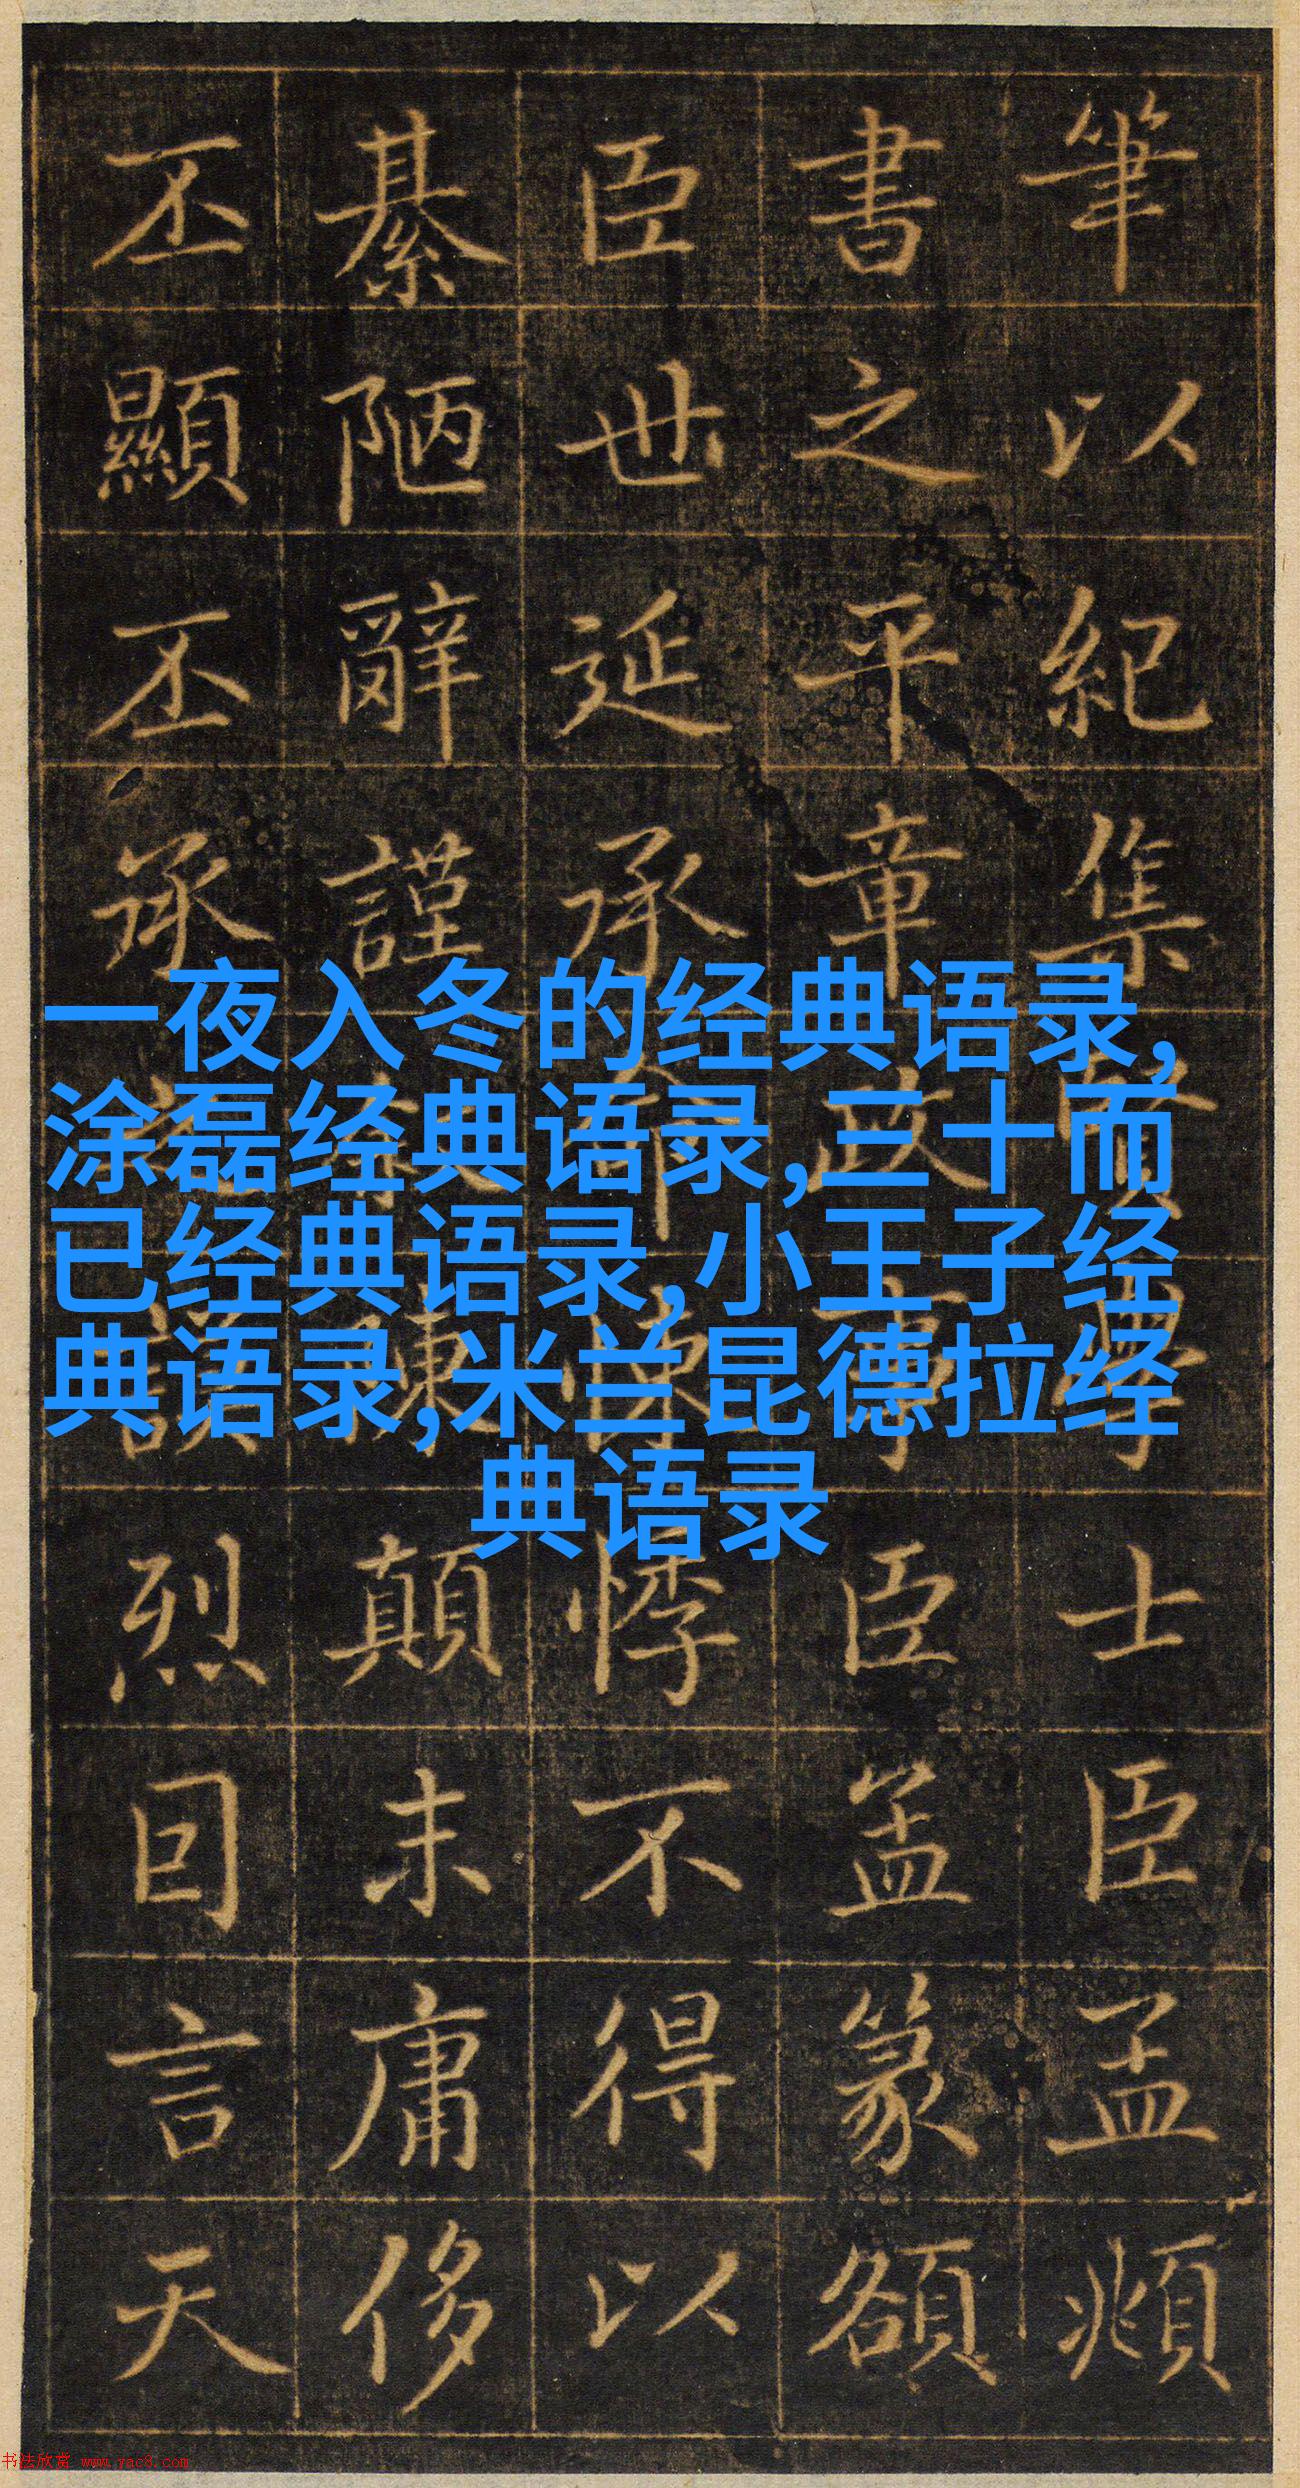 筆以紀集賢學士臣孟頫
書之平章政事臣篆額
臣世延承命悚悸不得以
綦陋辭謹陳顛末庸侈
丕顯丕承謨烈囙言天
一夜入冬的经典语录,
涂磊经典语录,三十而
已经典语录,小王子经
典语录,米兰昆德拉经
典语录
书法欣赏 www.yac8.com